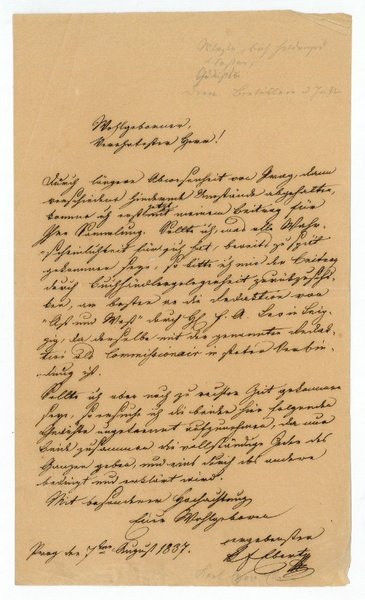 Wohlgeborner,
Verehrtester Herr!
Durch längere Abwesenheit von Prag, dann
verschiedene hindernde Umstände abgehalten,
komme ich erst jetzt mit meinem Beitrag für
Ihre Sammlung. Sollte ich, was alle Wahr-
scheinlichkeit für sich hat, bereits zu spät
gekommen seyn, so bitte ich mir den Beitrag
durch Buchhändlergelegenheit zurückzuschi-
ken, am besten an die Redaktion von
"Ost und West" durch H. F. A. Leo in Leip-
zig, da derselbe mit der genannten Redak-
tion als Commissionair in steter Verbin-
dung ist.
Sollte ich aber noch zu rechter Zeit gekommen
seyn, so ersuche ich die beiden hier folgende
Gedichte ungetrennt aufzunehmen, da nur
beide zusammen die vollständige Idee des
Ganzen geben, und eins durch das andere
bedingt und erklärt wird.
Mit besonderer Hochachtung
Euer Wohlgeboren
ergebenster
Prag den 7ten August 1837.
Elbert